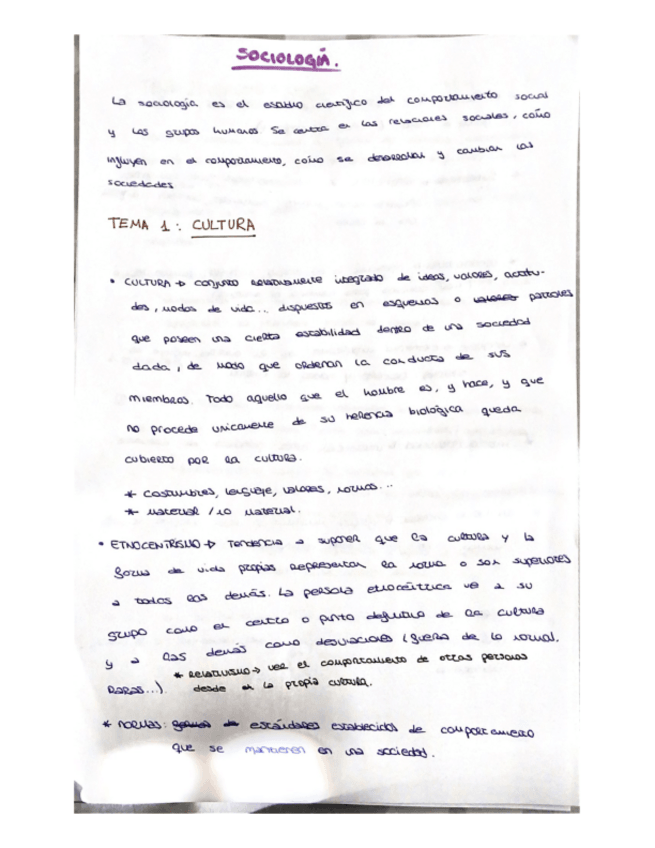 SOCIOLOGÍA.
La sociología es el estudio científico del comportamiento social
y los grupos humanos. Se centra en las relaciones sociales, cómo
influyen en el comportamiento, cómo se desarrollan y cambian las
sociedades
TEMA 1: CULTURA
• CULTURA → conjunto relativamente integrado de ideas, valores, actitu-
des, modos de vida... dispuestos en esquemas o valores patrones
que poseen una cierta estabilidad dentro de una sociedad
dada, de modo que ordenan la conducta de sus
miembros. Todo aquello que el hombre es, y hace, y que
no procede unicamente de su herencia biológica queda
cubierto por la cultura.
* Costumbres, lenguaje, valores, normas...
* Material / no material.
• ETNOCENTRISMO → Tendencia a suponer que la cultura y la
forma de vida propias representan la norma o son superiores
a todas las demás. La persona etnocéntrica ve a su
grupo como el centro o punto definitivo de la cultura
y a las demás como desviaciones (fuera de lo normal,
raras...).
* Relativismo → ver el comportamiento de otras personas
desde la propia cultura.
* NORMAS: estándares establecidos de comportamiento
que se mantienen en una sociedad.